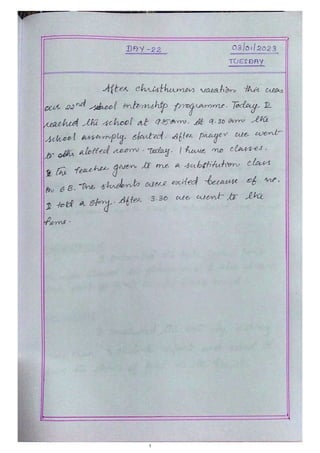 DAY-22
03/01/2023
TUESDAY
After christhumas vacation this was
our 22nd school intenship programme. Today I
reached the school at 9.15am. At 9.30 am the
school assumply started. After prayer we went
to alotted room. Today. I have no classes.
The Teacher given to me a substitution class
in 8B. The students were excited because of me.
I told a story. After 3.30 we went to the
home.
1